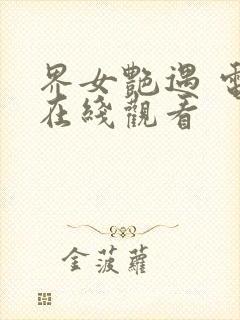 界女艷遇 電
在綫觀看
金菠蘿